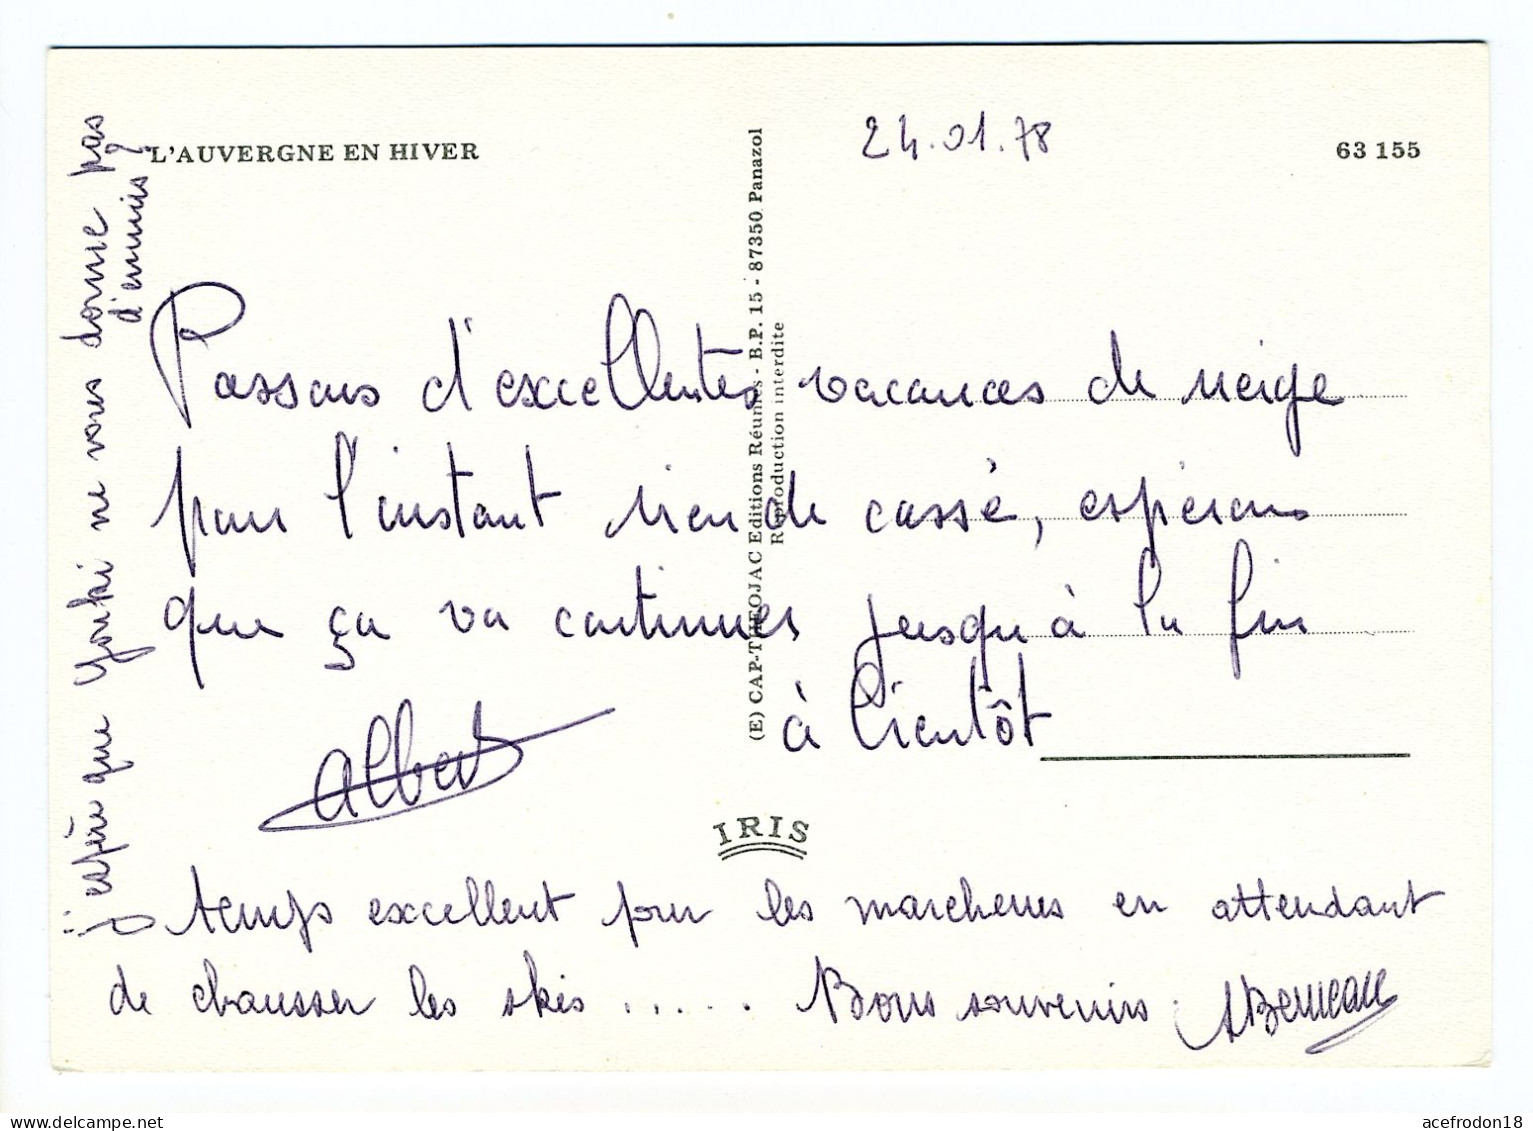 L'AUVERGNE EN HIVER
24.01.78
63 155
Passons d'excellentes vacances de neige
pour l'instant rien de cassé, espérons
que ça va continuer jusqu'à la fin
à bientôt
Albert
(E) CAP-THEOJAC Editions Réunies - B.P. 15 - 87350 Panazol
Reproduction interdite
IRIS
temps excellent pour les marcheurs en attendant
de chausser les skis ..... Bons souvenirs
j'espère que Youki ne vous donne pas
d'ennuis ?
acefrodon18